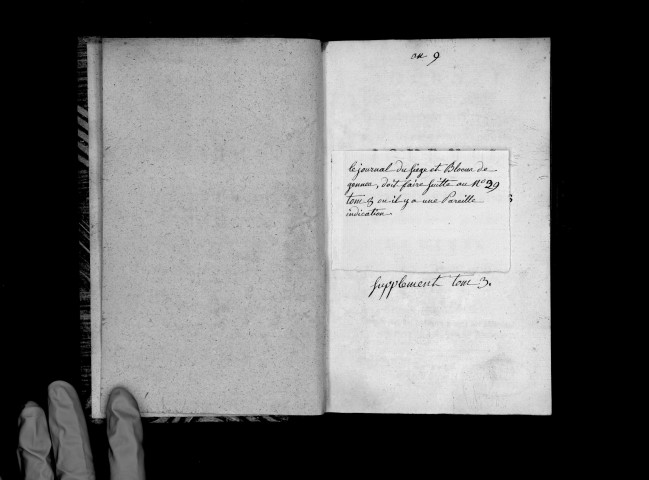 an 9
le journal du siege et Blocus de
gennes, doit faire suitte au N° 29
tom 3 ou il y a une Pareille
indication.
supplement tom 3.